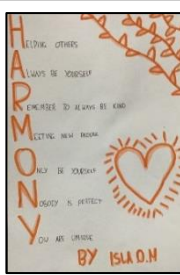 HELPING OTHERS
ALWAYS BE YOURSELF
REMEMBER TO ALWAYS BE KIND
MEETING NEW PEOPLE
ONLY BE YOURSELF
NOBODY IS PERFECT
YOU ARE UNIQUE
BY ISLA O.N